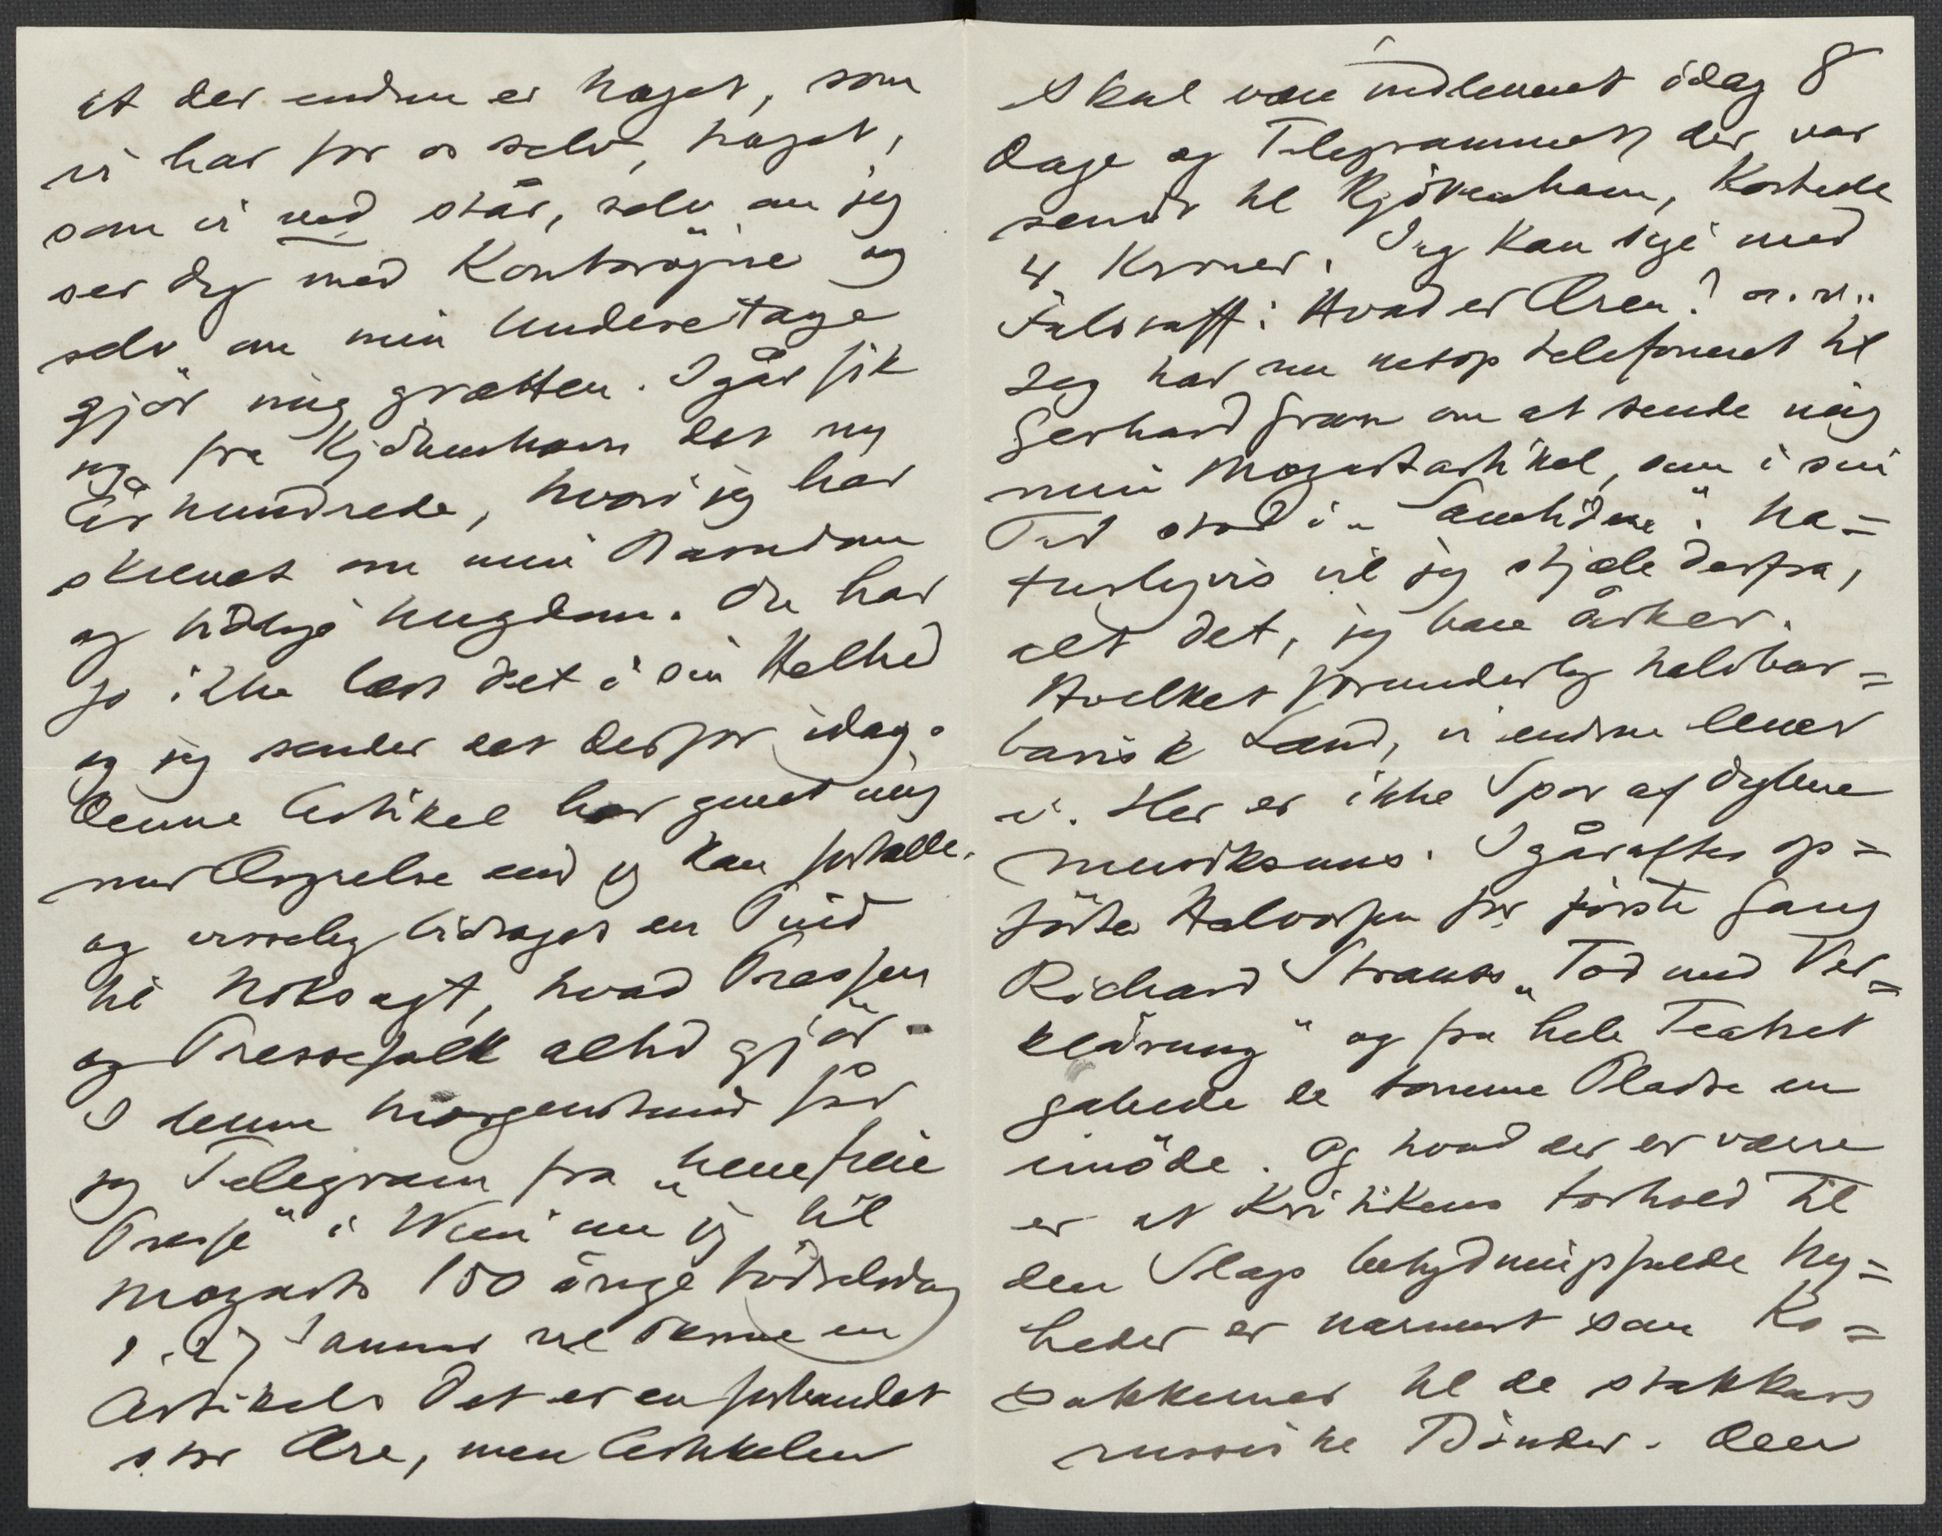 at der endnu er noget, som
vi har for os selv, noget,
som vi ved står, selv om jeg
ser dig med Kontorøjne og
selv om min Underetage
gjör mig grætten. Igår fik
jeg fra Kjöbenhavn det ny
Århundrede, hvori jeg har
skrevet om min Barndom
og tidlige Ungdom. Du har
jo ikke læst det i sin Helhed
og jeg sender det derfor idag.
Denne Artikel har givet mig
mer Ærgrelse end jeg kan fortælle.
og visselig bidraget en Smid
til Noksagt, hvad Pressen
og Pressefolk altid gjör.
I denne Morgenstund får
jeg Telegram fra „Neue freie
Presse" i Wien om jeg til
Mozarts 150 årige Födselsdag
d. 27 Januar vil skrive en
Artikel. Det er en forbandet
stor Ære, men Artikelen
skal være indleveret idag 8
Dage og Telegrammet, der var
sendt til Kjöbenhavn, kostede
4 Kroner. Jeg kan sige med
Falstaff: Hvad er Ære? o.s.v.
Jeg har nu netop telefoneret til
Gerhard Gran om at sende mig
min Mozartartikel, som i sin
Tid stod i „Samtiden". Na=
turligvis vil jeg stjæle derfra,
alt det, jeg bare orker.
Hvilket forunderlig halvbar=
barisk Land, vi endnu lever
i. Her er ikke Spor af dybere
Musiksans. Igåraftes op=
förte Halvorsen for förste Gang
Richard Strauss „Tod und Ver=
klärung" og fra hele Teatret
gabede de tomme Pladse en
imöde. Og hvad der er værre
er at Kritikens Forhold til
den Slags betydningsfulde Ny=
heder er nærmest som Ko=
sakkernes til de stakkars
russiske Bönder. Den